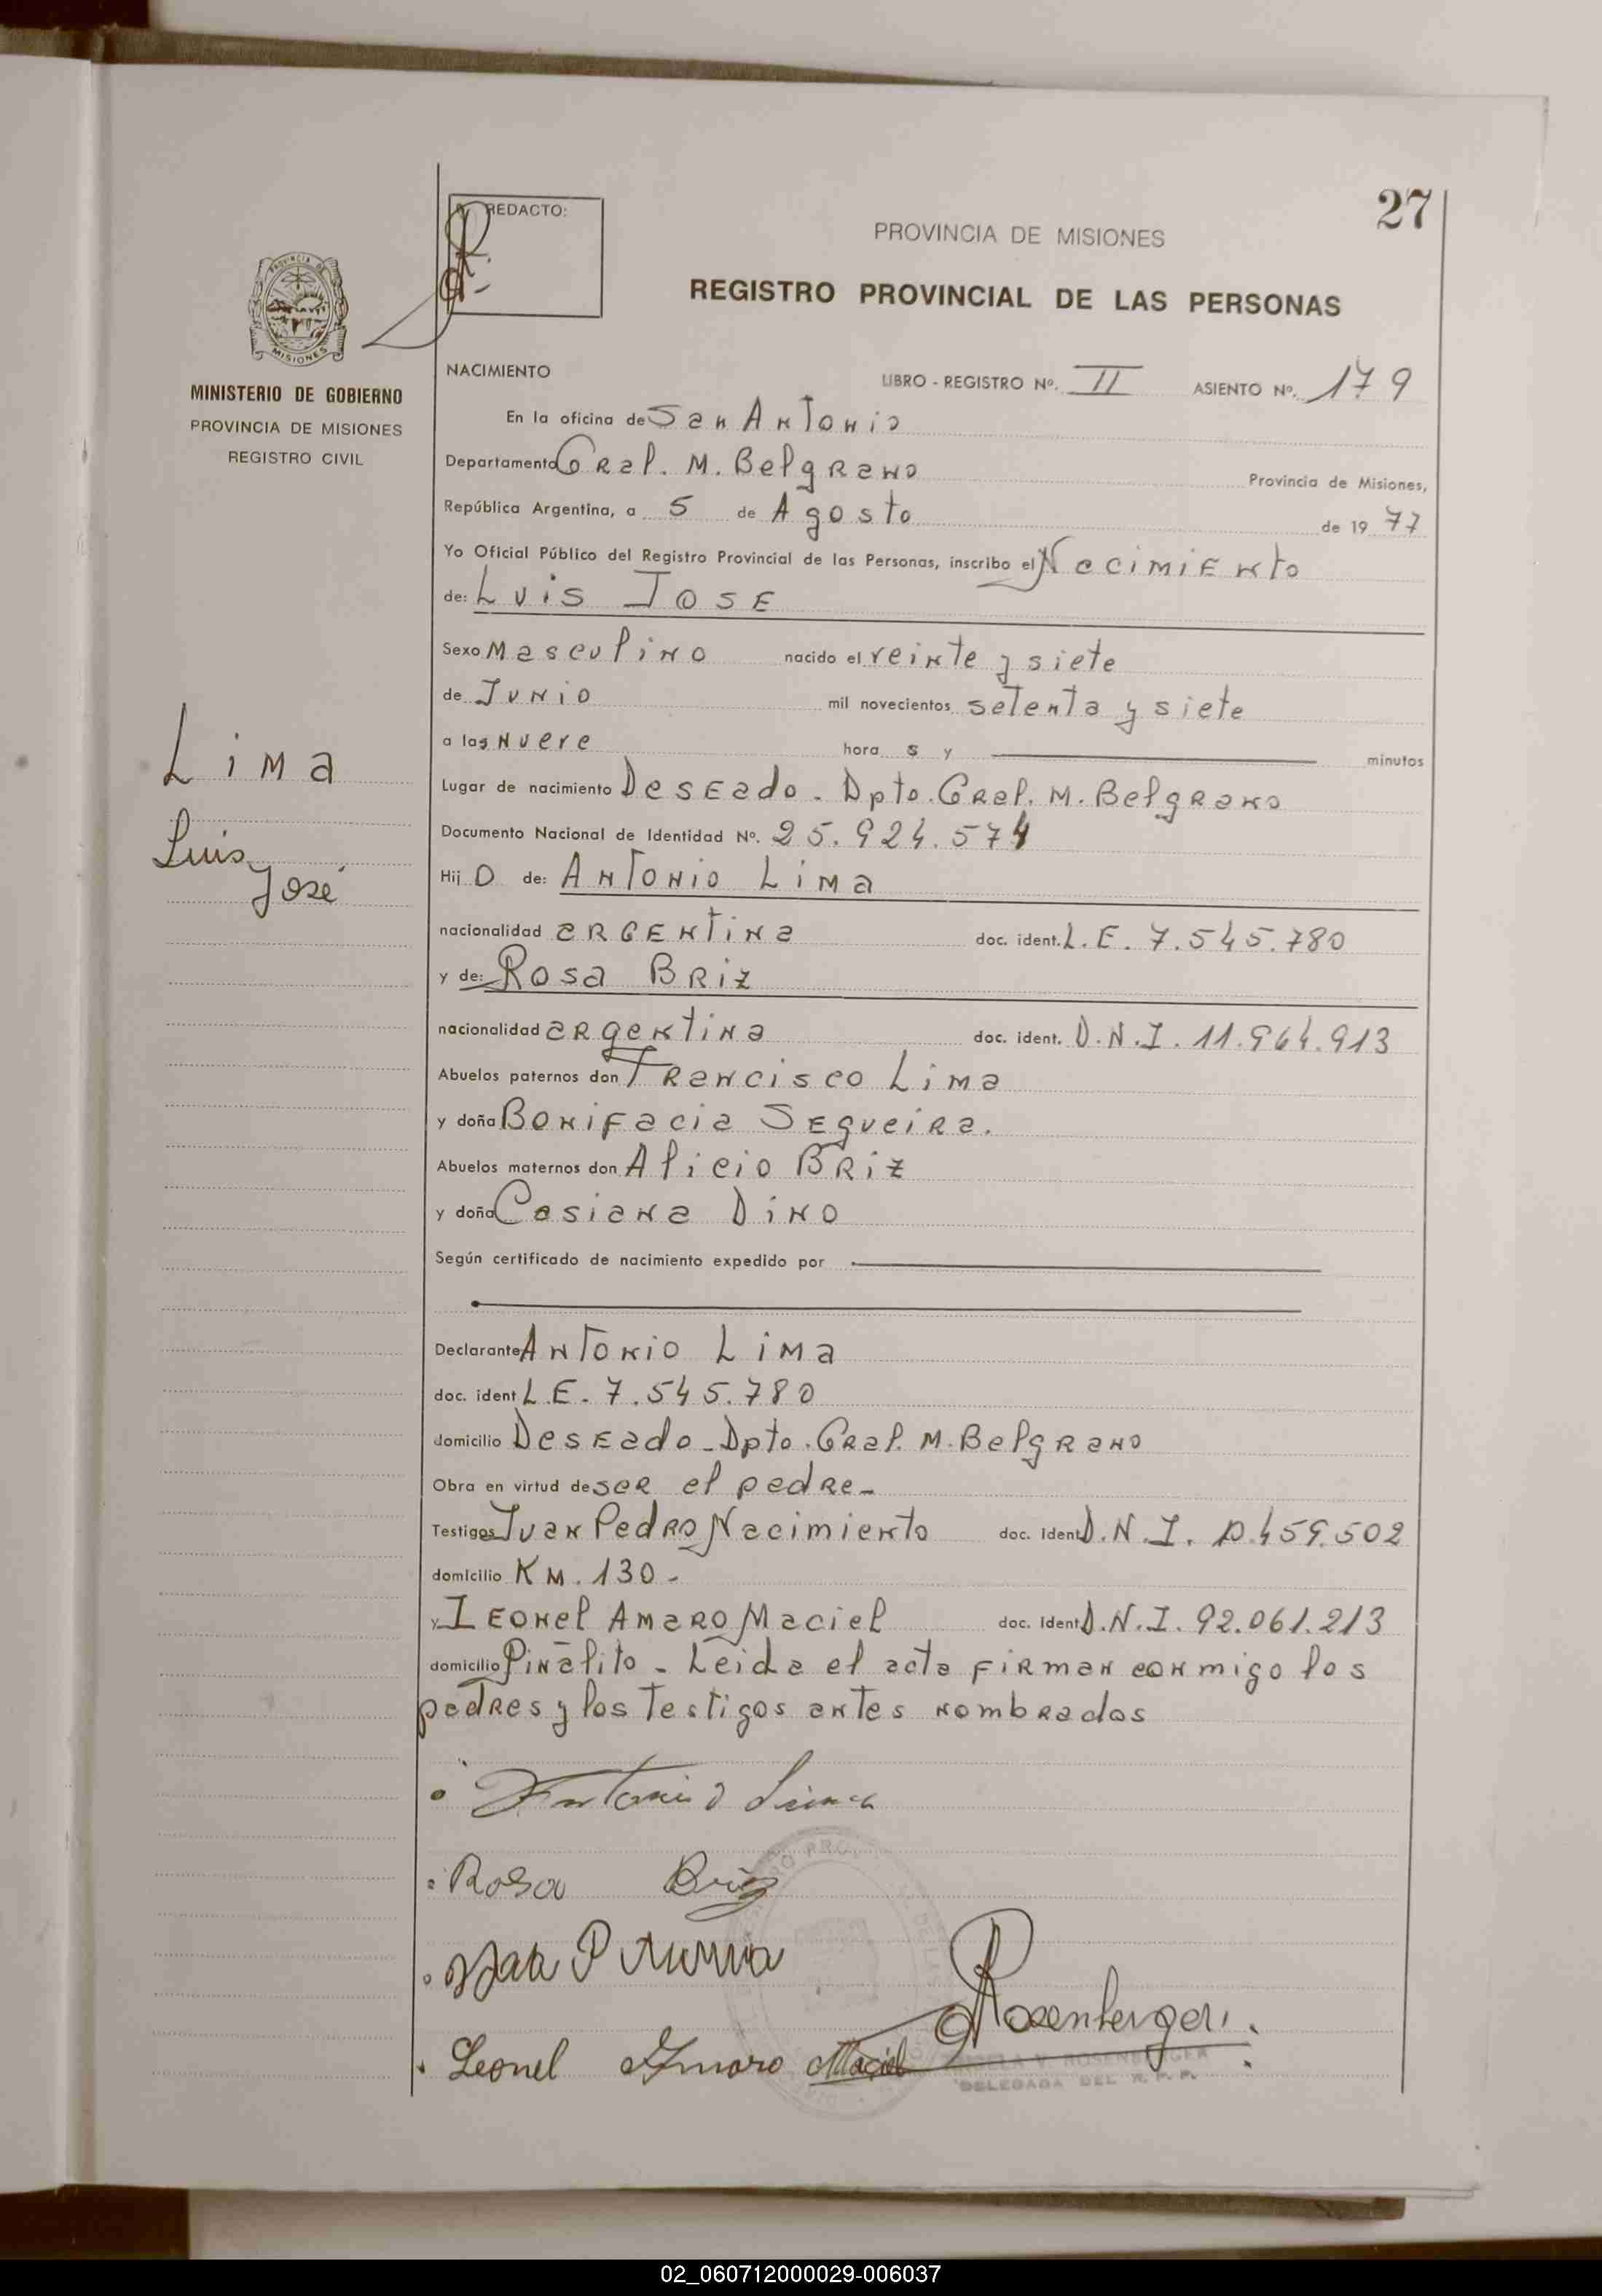 27
REDACTO:
PROVINCIA DE MISIONES
REGISTRO PROVINCIAL DE LAS PERSONAS
PROVINCIA DE
MISIONES
MINISTERIO DE GOBIERNO
PROVINCIA DE MISIONES
REGISTRO CIVIL
Lima
Luis
José
NACIMIENTO LIBRO - REGISTRO Nº. II ASIENTO Nº. 179
En la oficina de San Antonio
Departamento Gral. M. Belgrano Provincia de Misiones,
República Argentina, a 5 de Agosto de 1977
Yo Oficial Público del Registro Provincial de las Personas, inscribo el Nacimiento
de: Luis Jose
Sexo Masculino nacido el veinte y siete
de Junio mil novecientos setenta y siete
a las nueve hora s y minutos
Lugar de nacimiento Deseado - Dpto. Gral. M. Belgrano
Documento Nacional de Identidad Nº. 25.924.574
Hijo de: Antonio Lima
nacionalidad argentina doc. ident. L.E. 7.545.780
y de: Rosa Briz
nacionalidad argentina doc. ident. D.N.I. 11.964.913
Abuelos paternos don Francisco Lima
y doña Bonifacia Seqveira.
Abuelos maternos don Alicio Briz
y doña Casiana Dino
Según certificado de nacimiento expedido por
Declarante Antonio Lima
doc. ident L.E. 7.545.780
domicilio Deseado - Dpto. Gral. M. Belgrano
Obra en virtud de ser el padre -
Testigos Juan Pedro Nacimiento doc. Ident D.N.I.
domicilio KM. 130 -
y Leonel Amaro Maciel doc. Ident D.N.I. 92.061.213
domicilio Piñalito - Leida el acta firman conmigo los
padres y los testigos antes nombrados
Antonio Lima
Rosa Briz
Rosenberger.
Leonel Amaro Maciel
ROSENBERGER
DELEGADA DEL R. P. P.
02_060712000029-006037